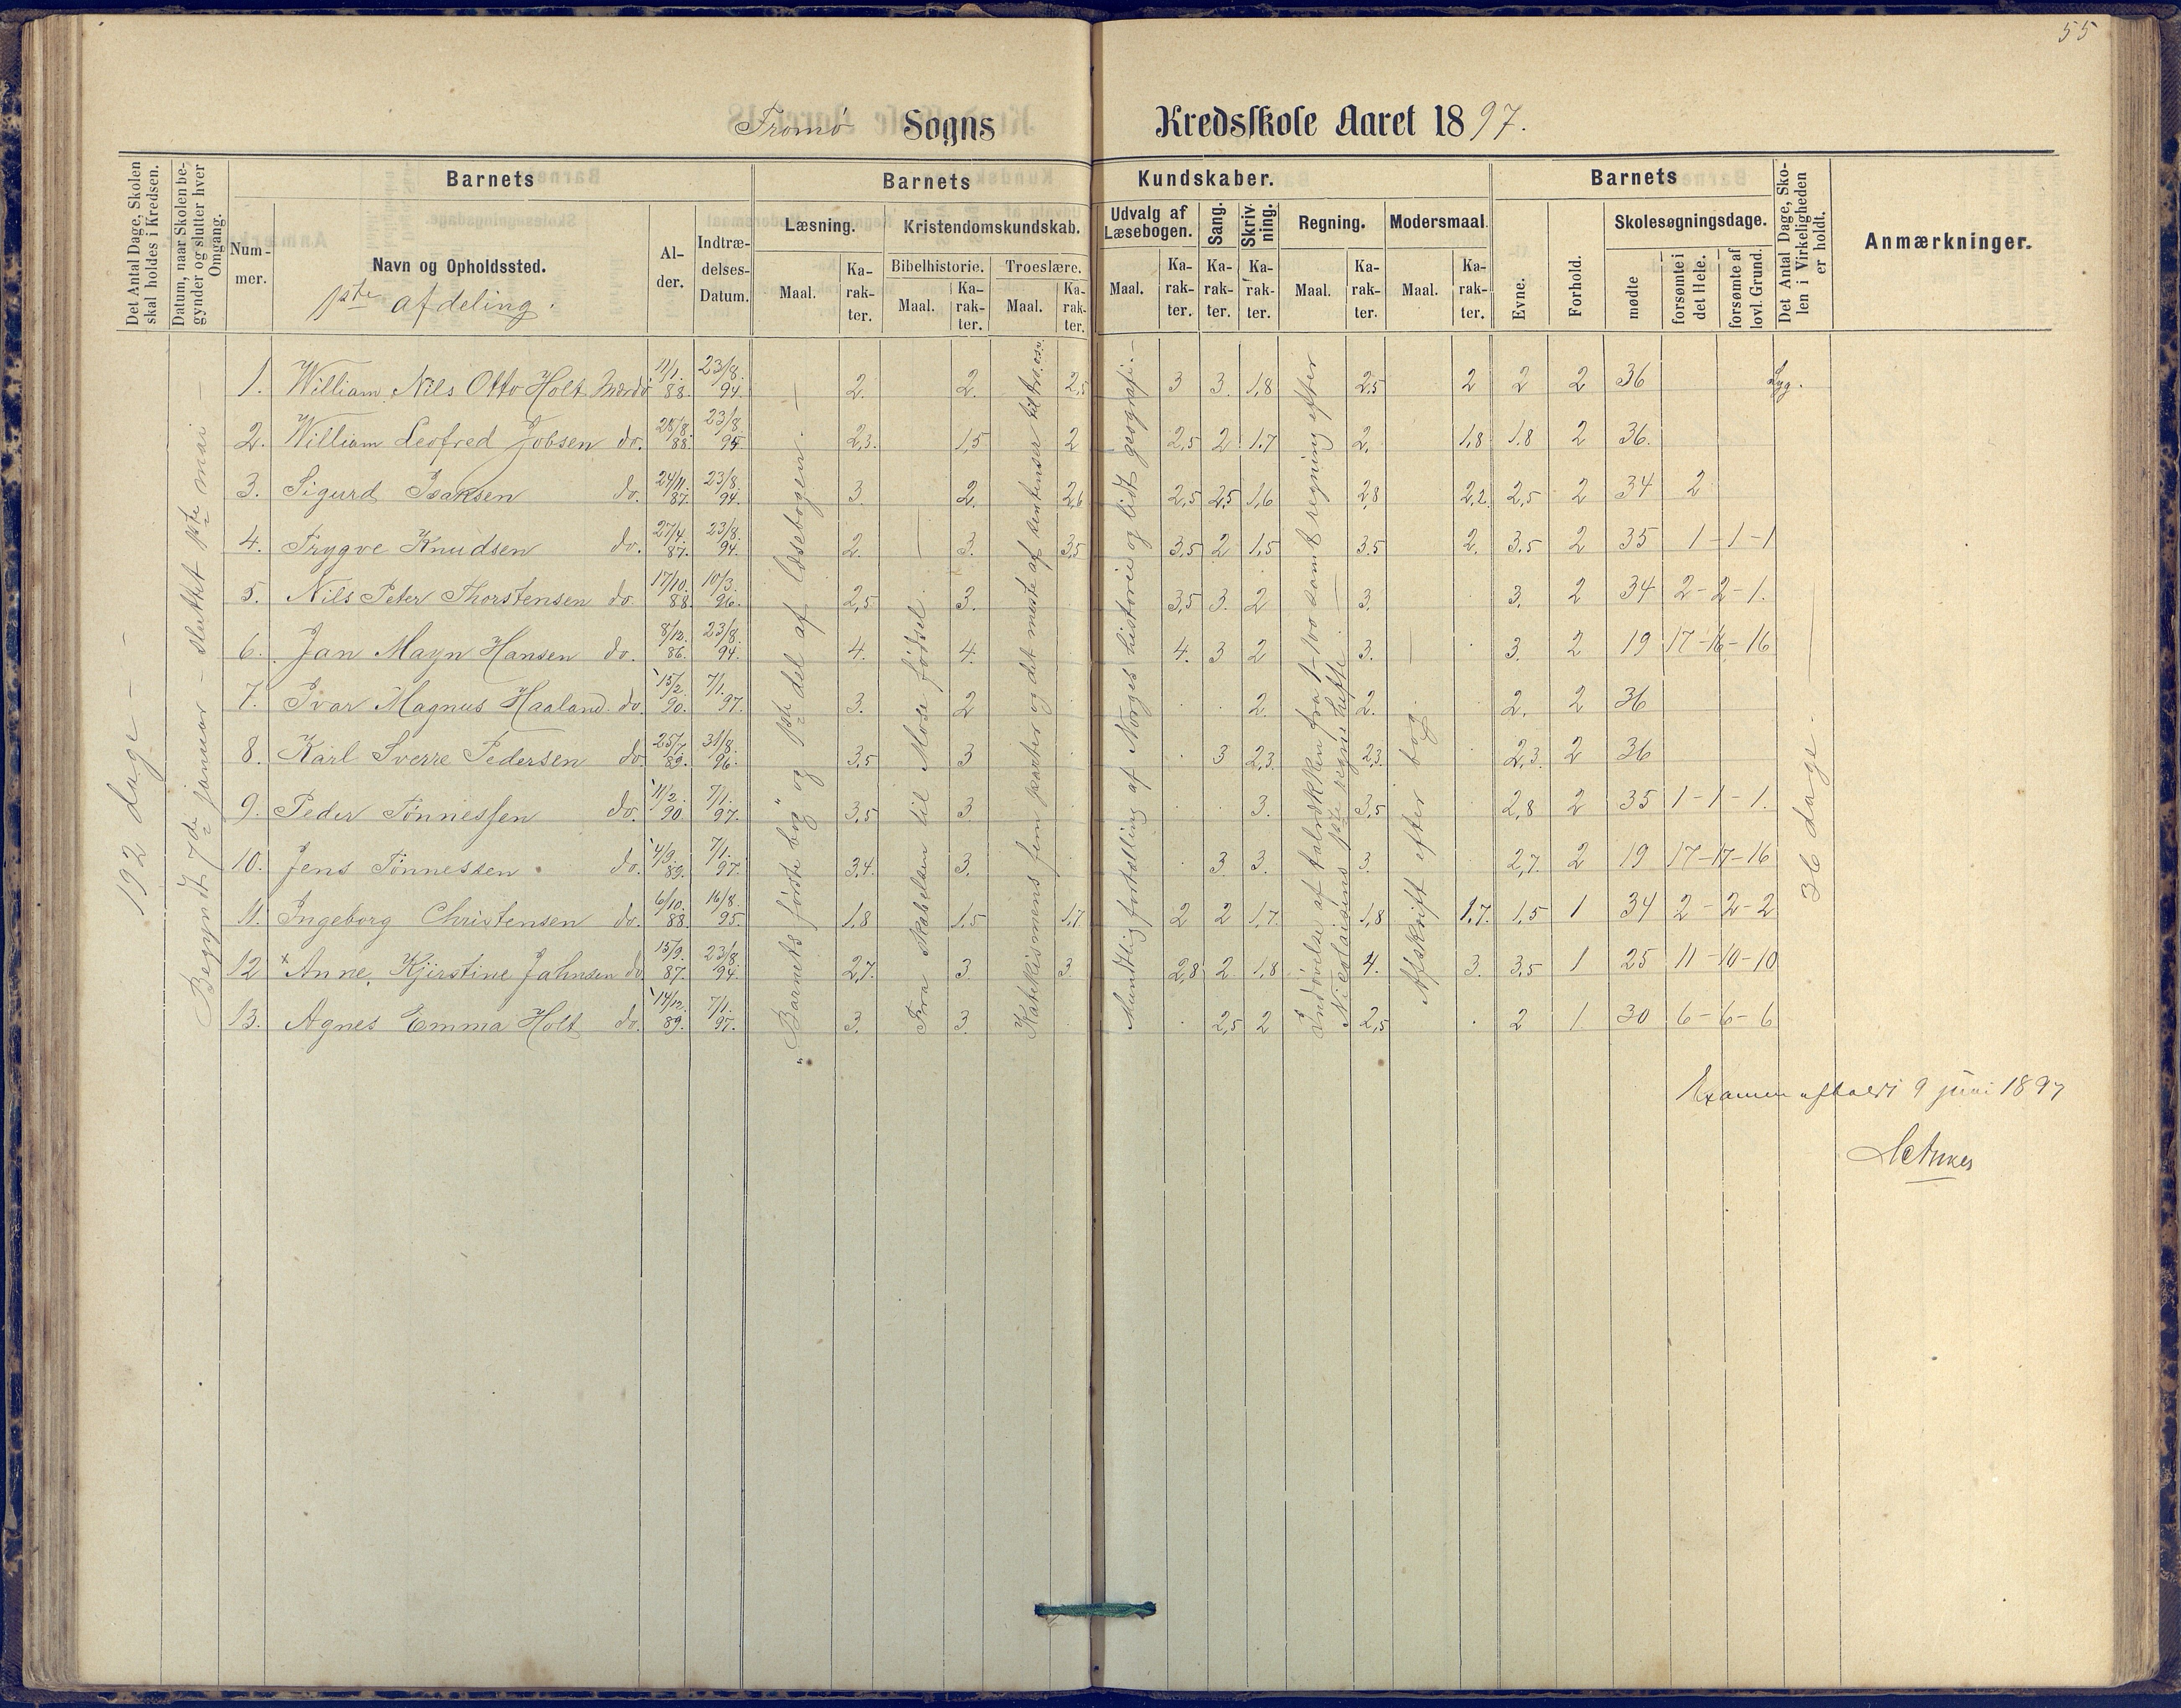 55
Tromø Sogns Kredsskole Aaret 1897.
Det Antal Dage, Skolen skal holdes i Kredsen.
Datum, naar Skolen begynder og slutter hver Omgang.
Barnets
Nummer.
Navn og Opholdssted.
1ste afdeling.
Alder.
Indtrædelses-Datum.
Barnets Kundskaber.
Læsning.
Maal.
Karakter.
Kristendomskundskab.
Bibelhistorie.
Maal.
Karakter.
Troeslære.
Maal.
Karakter.
Udvalg af Læsebogen.
Maal.
Karakter.
Sang.
Karakter.
Skrivning.
Karakter.
Regning.
Maal.
Karakter.
Modersmaal.
Maal.
Karakter.
Barnets
Evne.
Forhold.
Skolesøgningsdage.
mødte
forsømte i det Hele.
forsømte af lovl. Grund.
Det Antal Dage, Skolen i Virkeligheden er holdt.
Anmærkninger.
192 dage –
Begyndt 7de januar – sluttet 1ste mai –
"Barnets første bog" og 1ste del af læsebogen. –
Fra skabelsen til Mose fødsel.
Katekismens fem parter og det meste af
Mundtlig fortælling af Norges historie og lidt geografi. –
Indøvelse af talrækken fra 1–100 samt regning efter
Nicolaisens 1ste regnehefte.
Afskrift efter bog.
36 dage.
1. William Nils Otto Holt Mærdø 11/1. 88. 23/8. 94. 2. 2. 2,5 3 3. 1,8 2,5 2 2 2 36 Syg.
2. William Leofred Jobsen do. 28/8. 88. 23/8. 95. 2,3. 1,5 2 2,5 2 1,7 2. 1,8 1.8 2 36.
3. Sigurd Isaksen do. 24/11. 87. 23/8. 94. 3. 2. 2,6 2,5 2,5 1,6 2,8 2,2 2,5 2 34 2
4. Trygve Knudsen do. 27/4. 87. 23/8. 94. 2. 3. 3,5 3,5 2 1,5 3.5 2. 3.5 2 35 1 – 1 – 1
5. Nils Peter Thorstensen do. 17/10. 88. 10/3. 96. 2,5 3. 3,5 3. 2 3. 3. 2 34 2 – 2 – 1.
6. Jan Mayn Hansen do. 8/12. 86. 23/8. 94. 4. 4. 4. 3 2 3. 3. 2 19 17 – 16 – 16
7. Ivar Magnus Haaland. do. 15/2. 90. 7/1. 97. 3. 2 2. 2. 2. 2 36
8. Karl Sverre Pedersen do. 25/7. 89. 31/8. 96. 3,5 3 3 2,3. 2,3. 2,3. 2 36
9. Peder Tønnessen do. 11/2. 90 7/1. 97. 3,5 3. 3. 3,5 2,8 2 35 1 – 1 – 1.
10. Jens Tønnessen do. 4/9. 89. 7/1. 97. 3,4. 3. 3. 3. 3. 2,7. 2 19 17 – 17 – 16
11. Ingeborg Christensen do. 6/10. 88. 16/8. 95. 1,8 1,5 1,7 2 2 1,7. 1,8 1.7. 1,5 1 34 2 – 2 – 2
12 × Anne Kjirstine Jahnsen do 15/9. 87. 23/8. 94. 2,7. 3. 3. 2,8 2 1,8 4. 3. 3,5 1 25 11 – 10 – 10
13. Agnes Emma Holt do. 14/12. 89. 7/1. 97. 3. 3. 2,5 2 2,5 2 1. 30 6 – 6 – 6
Examen afholdt 9 juni 1897